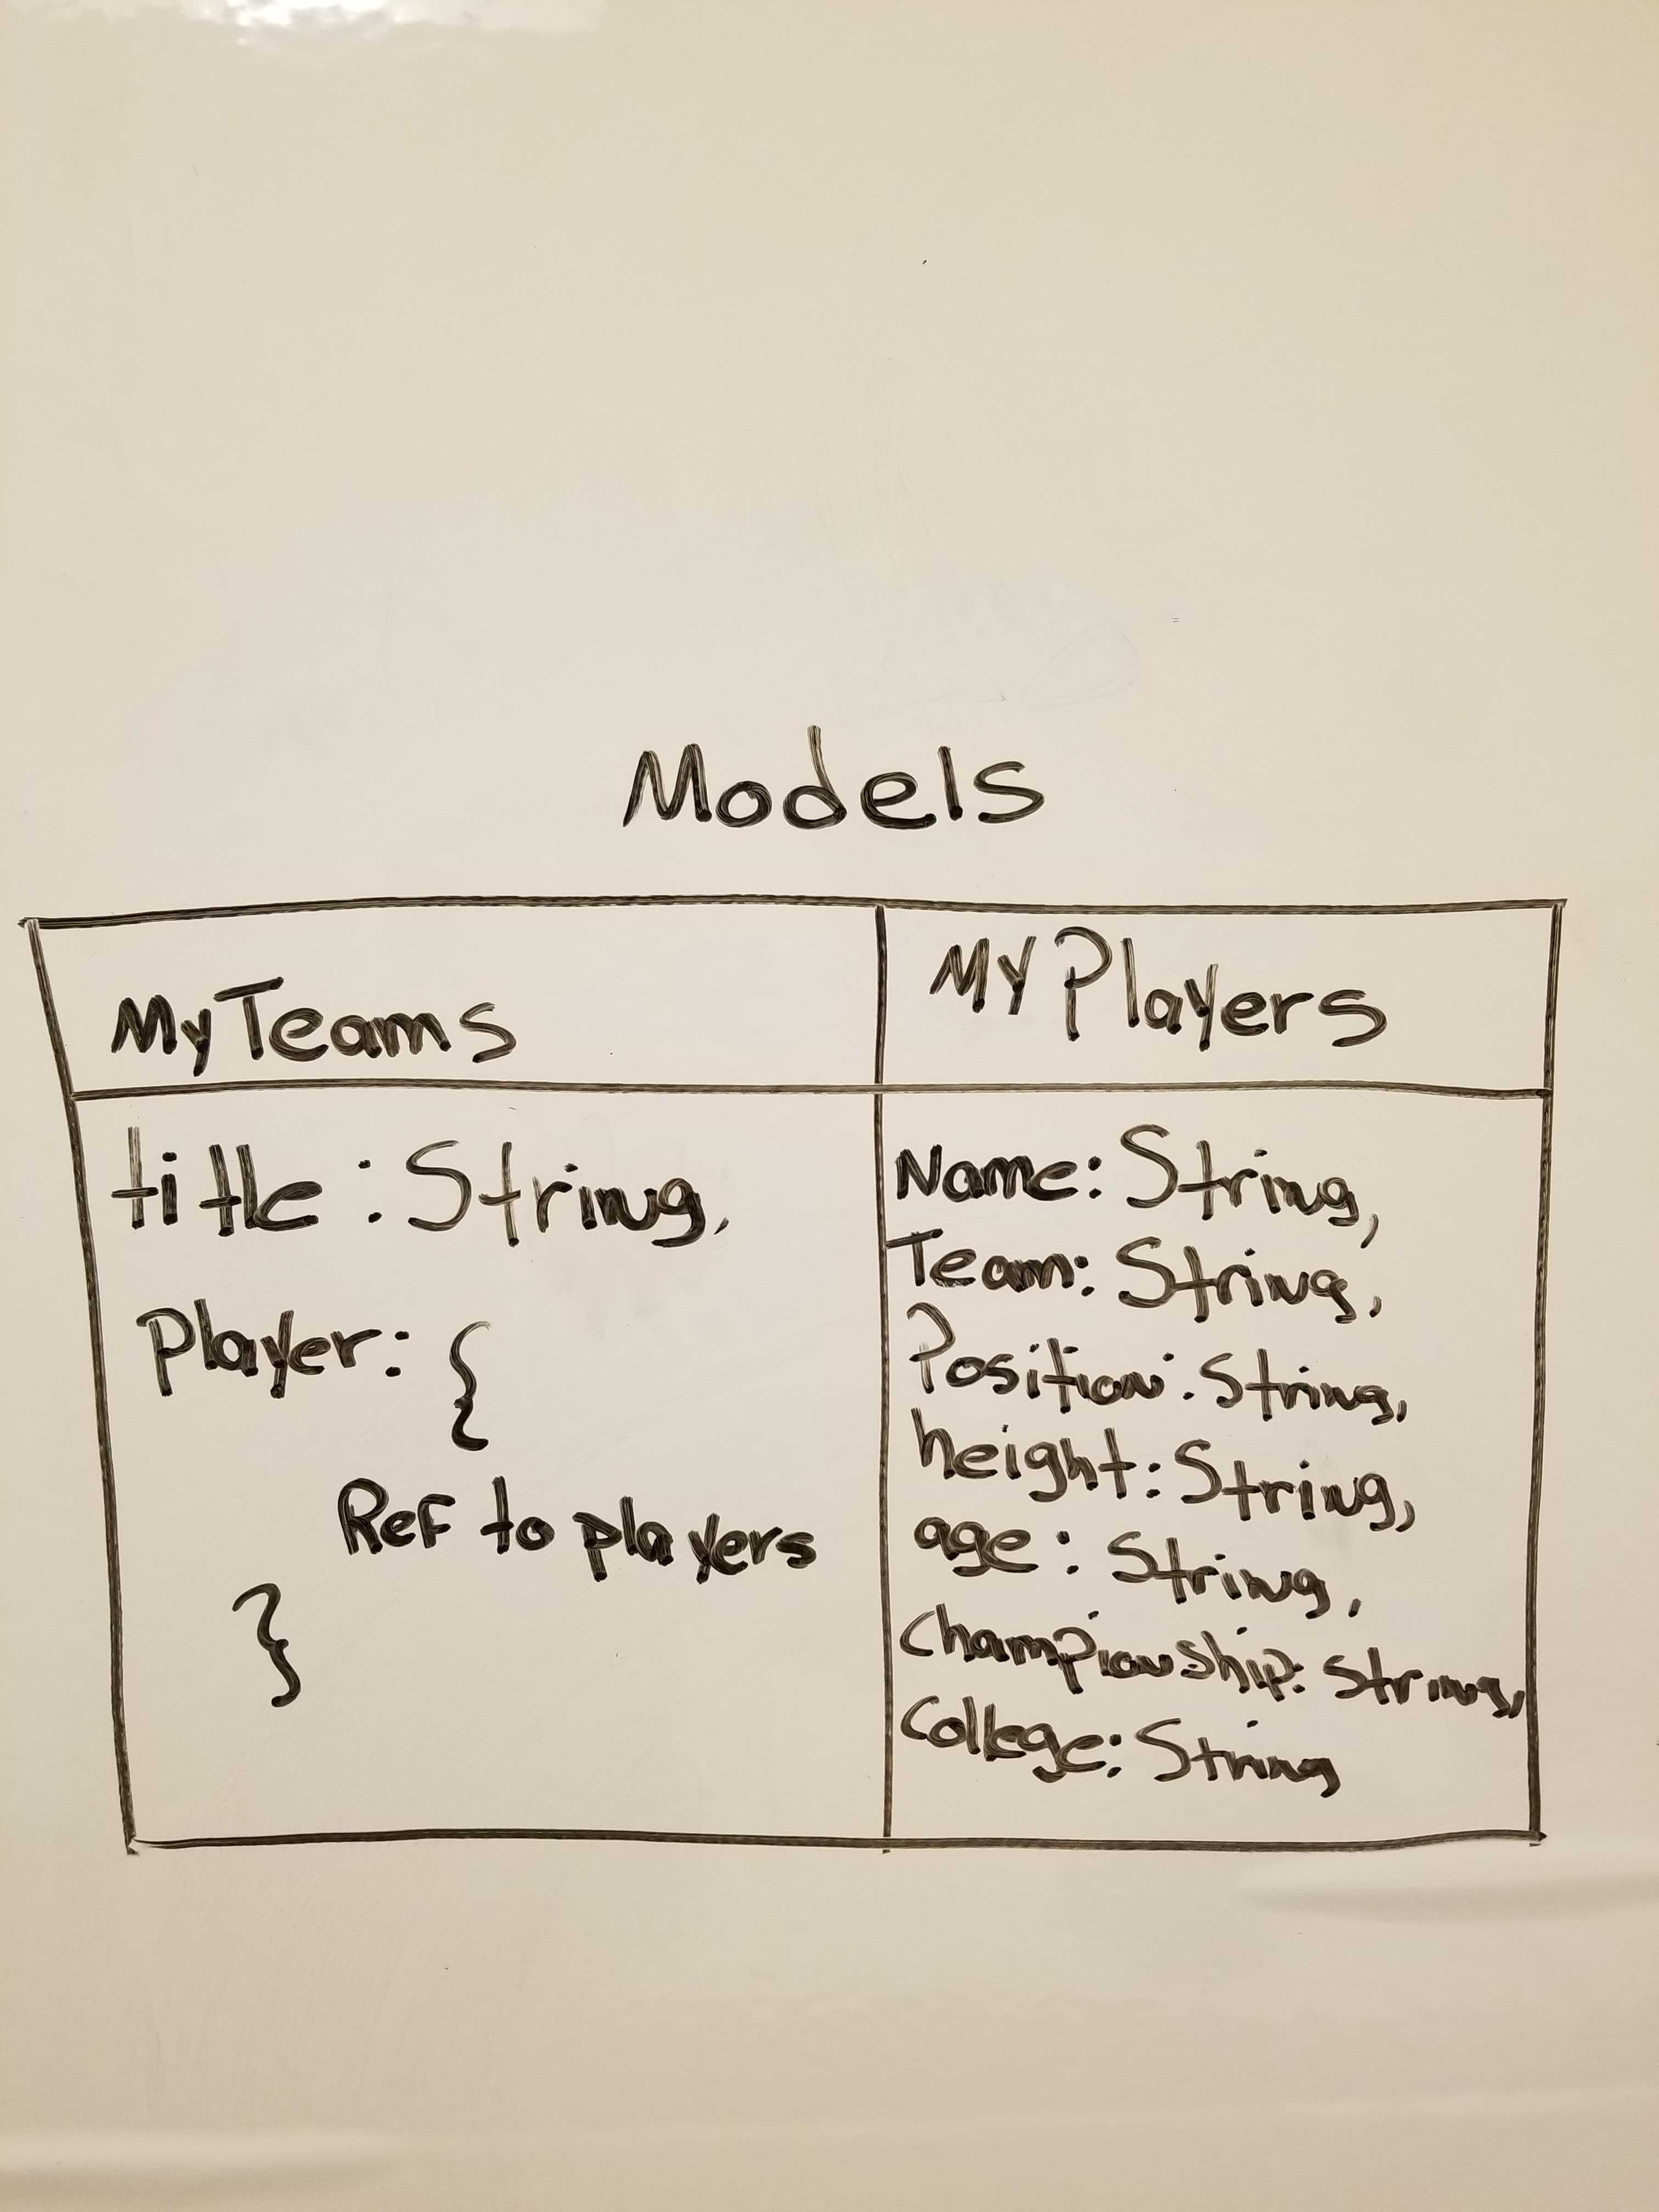 Models
MyTeams
MyPlayers
title: String,
Player: {
Ref to players
}
Name: String,
Team: String,
Position: String,
height: String,
age: String,
Championship: String,
College: String